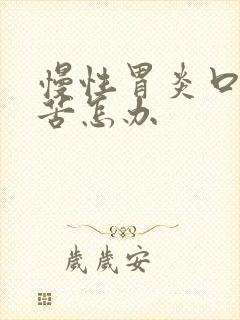 慢性胃炎口
苦怎办
歲歲安